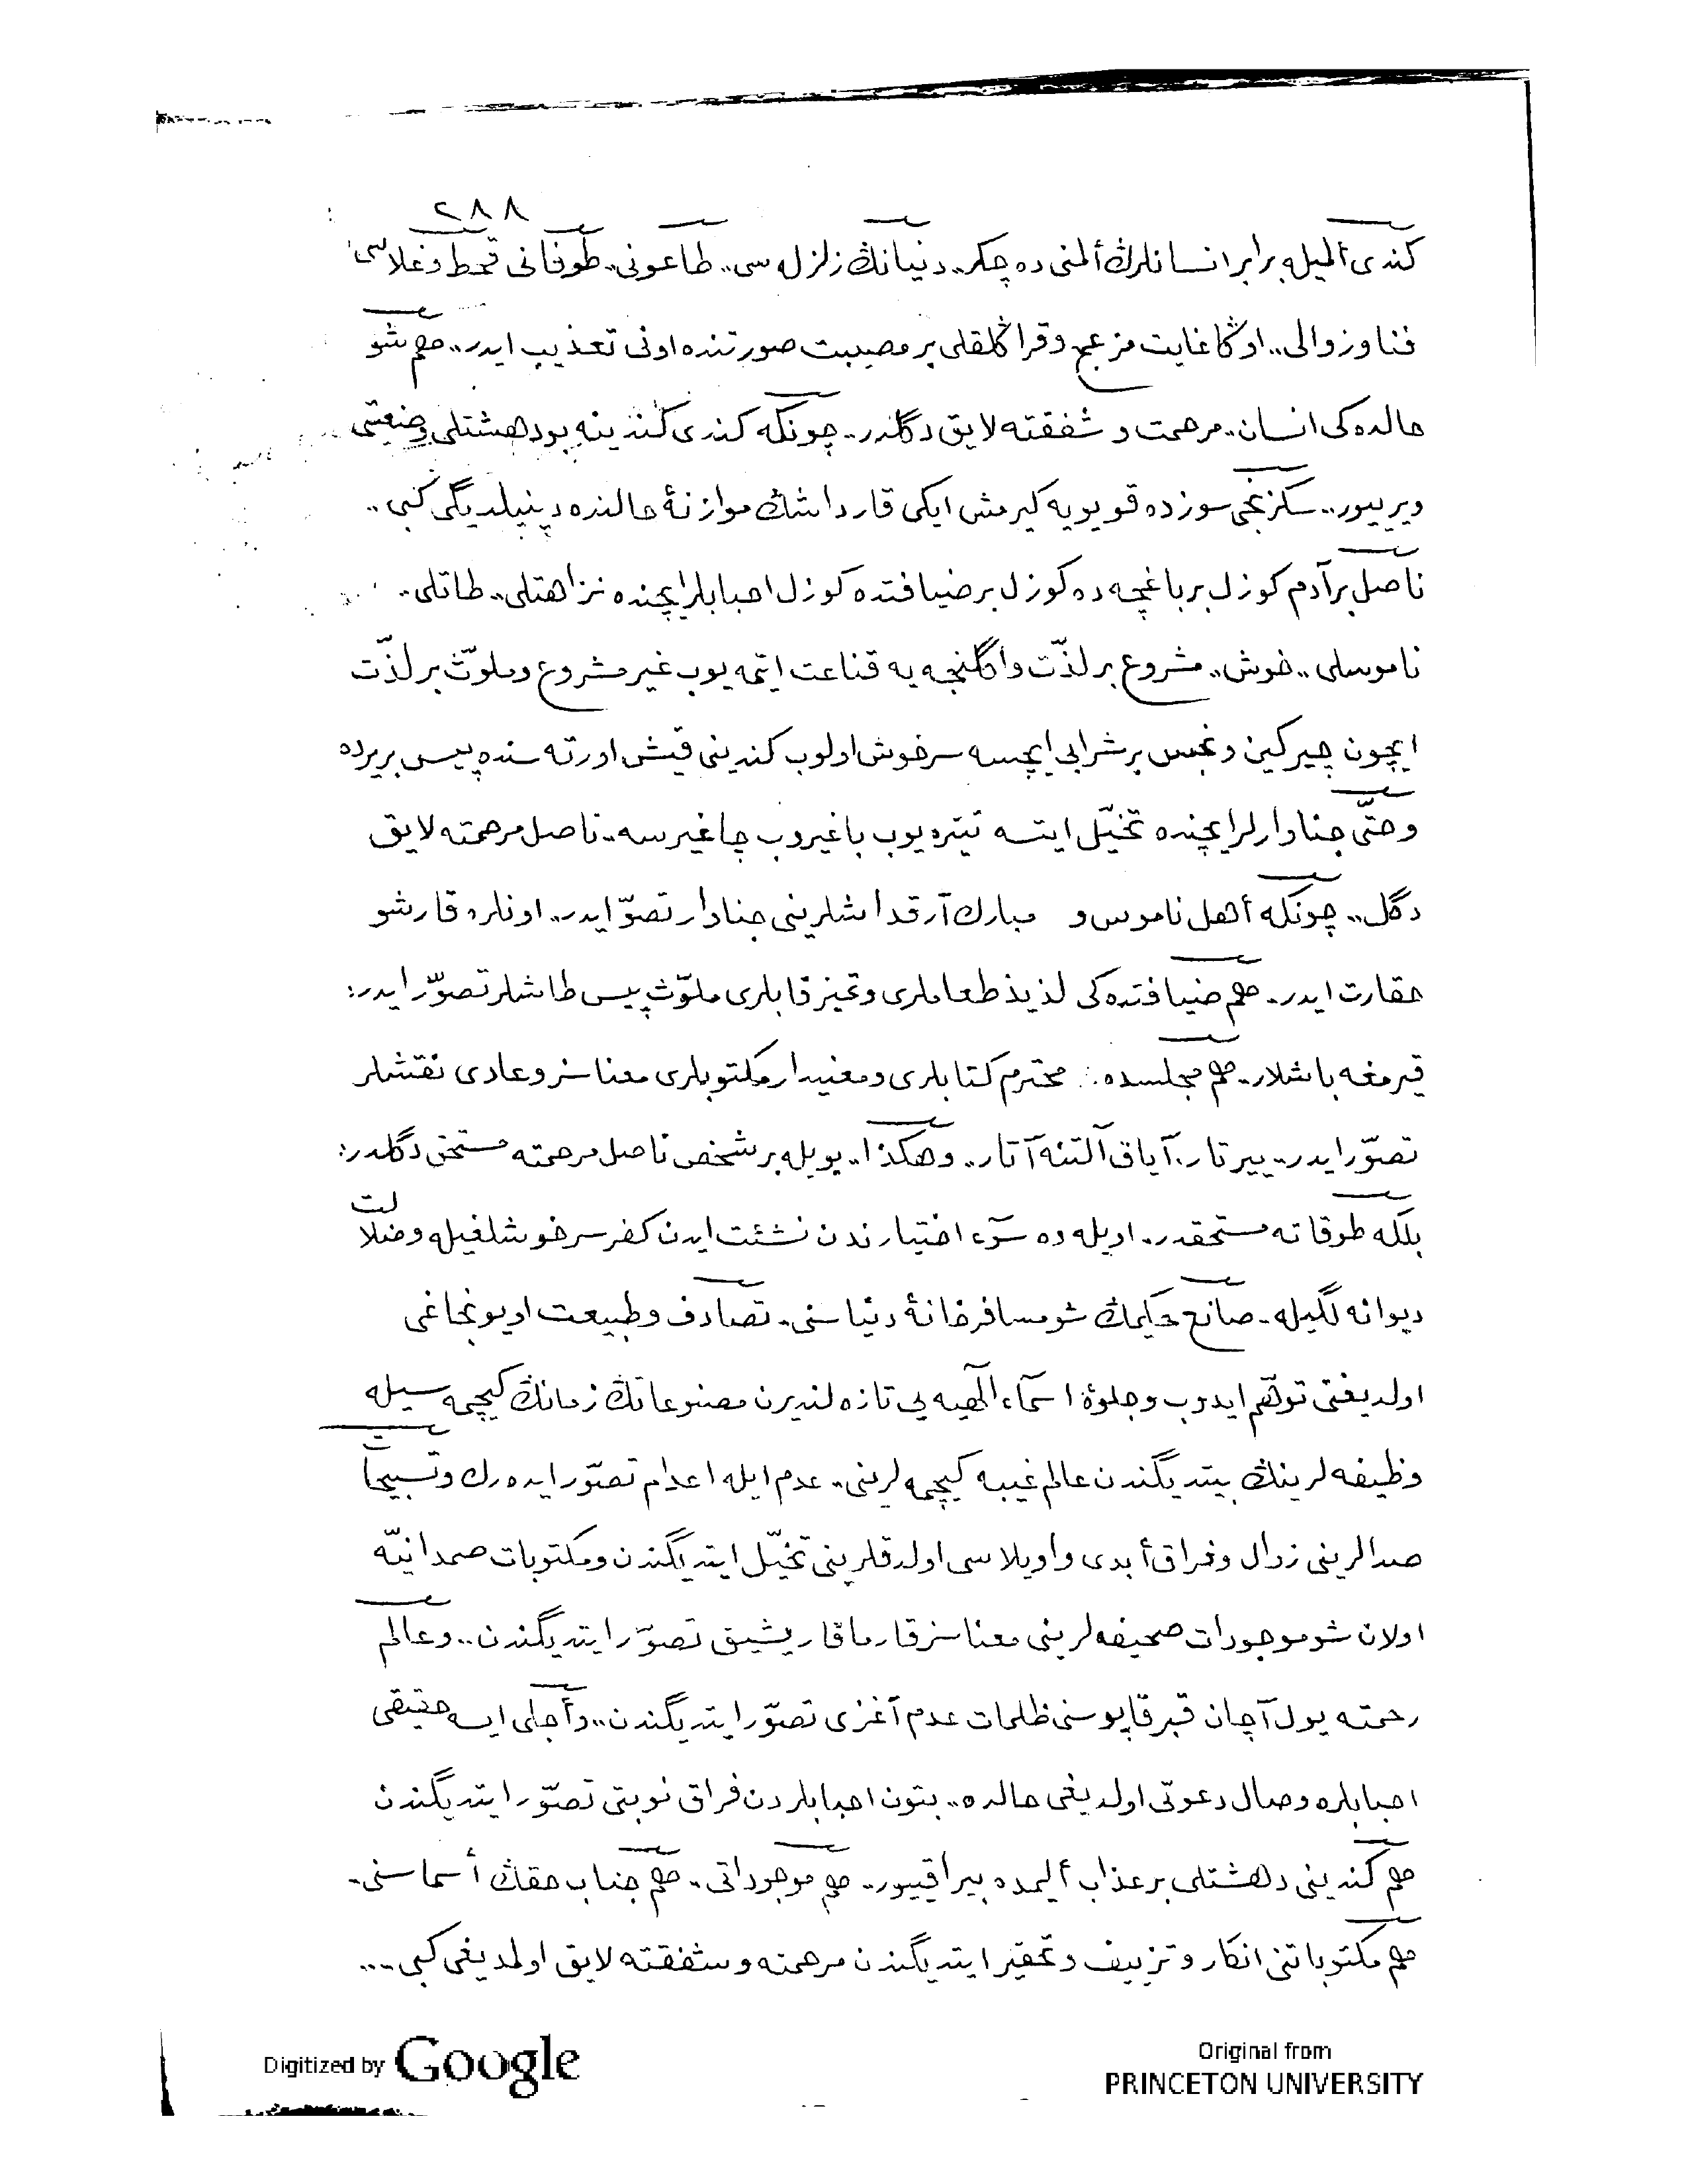 ٢٨٨
كندى ألميله برابر انسانلرڭ ألمنى ده چكر.. دنيانڭ زلزله سى.. طاعونى.. طوفانى قحط وغلاسى
فنا وزوالى.. اوڭا غايت مزعج وقراڭلقلى بر مصيبت صورتنده اونى تعذيب ايدر.. هم شو
حالده كى انسان.. مرحمت و شفقته لايق دگلدر.. چونكه كندى كندينه بو دهشتلى وضعيتى
ويرييور.. سكزنجى سوزده قويويه كيرمش ايكى قارداشڭ موازنۀ حالنده دينيلديگى كبى..
ناصل بر آدم كوزل بر باغچه ده كوزل بر ضيافتده كوزل احبابلر ايچنده نزاهتلى.. طاتلى..
ناموسلى.. خوش.. مشروع بر لذّت واگلنجه يه قناعت ايتمه يوب غير مشروع وملوّث بر لذّت
ايچون چيركين ونجس بر شرابى ايچسه سرخوش اولوب كندينى قيش اورته سنده پيس بر يرده
وحتّى جناوارلر ايچنده تخيّل ايتسه تيتره يوب باغيروب چاغيرسه.. ناصل مرحمته لايق
دگل.. چونكه أهل ناموس و مبارك آرقداشلرينى جناوار تصوّر ايدر.. اونلره قارشو
حقارت ايدر.. هم ضيافتده كى لذيذ طعاملرى وتميز قابلرى ملوّث پيس طاشلر تصوّر ايدر:
قيرمغه باشلار.. هم مجلسده محترم كتابلرى ومعنيدار مكتوبلرى معناسز وعادى نقشلر
تصوّر ايدر.. ييرتار. آياق آلتنه آتار.. وهكذا.. بويله بر شخص ناصل مرحمته مستحق دگلدر:
بلكه طوقاته مستحقدر.. اويله ده سوٓء اختيارندن نشئت ايدن كفر سرخوشلغيله وضلالت
ديوانه لگيله.. صانع حكيمڭ شو مسافرخانۀ دنياسنى.. تصادف وطبيعت اويونجاغى
اولديغنى توهّم ايدوب وجلوۀ اسمآء الٓهيه يى تازه لنديرن مصنوعاتڭ زمانڭ كيچمه سيله
وظيفه لرينڭ بيتديگندن عالم غيبه كيچمه لرينى.. عدم ايله اعدام تصوّر ايده رك وتسبيحات
صدالرينى زوال وفراق أبدى واويلاسى اولدقلرينى تخيّل ايتديگندن ومكتوبات صمدانيّه
اولان شو موجودات صحيفه لرينى معناسز قارماقاريشيق تصوّر ايتديگندن.. وعالم
رحمته يول آچان قبر قاپوسنى ظلمات عدم آغزى تصوّر ايتديگندن.. وأجلى ايسه حقيقى
احبابلره وصال دعوتى اولديغى حالده.. بتون احبابلردن فراق نوبتى تصوّر ايتديگندن
هم كندينى دهشتلى بر عذاب أليمده بيراقييور.. هم موجوداتى.. هم جناب حقڭ أسماسنى..
هم مكتوباتنى انكار وتزييف وتحقير ايتديگندن مرحمته وشفقته لايق اولمديغى كبى...
Digitized by Google
Original from
PRINCETON UNIVERSITY